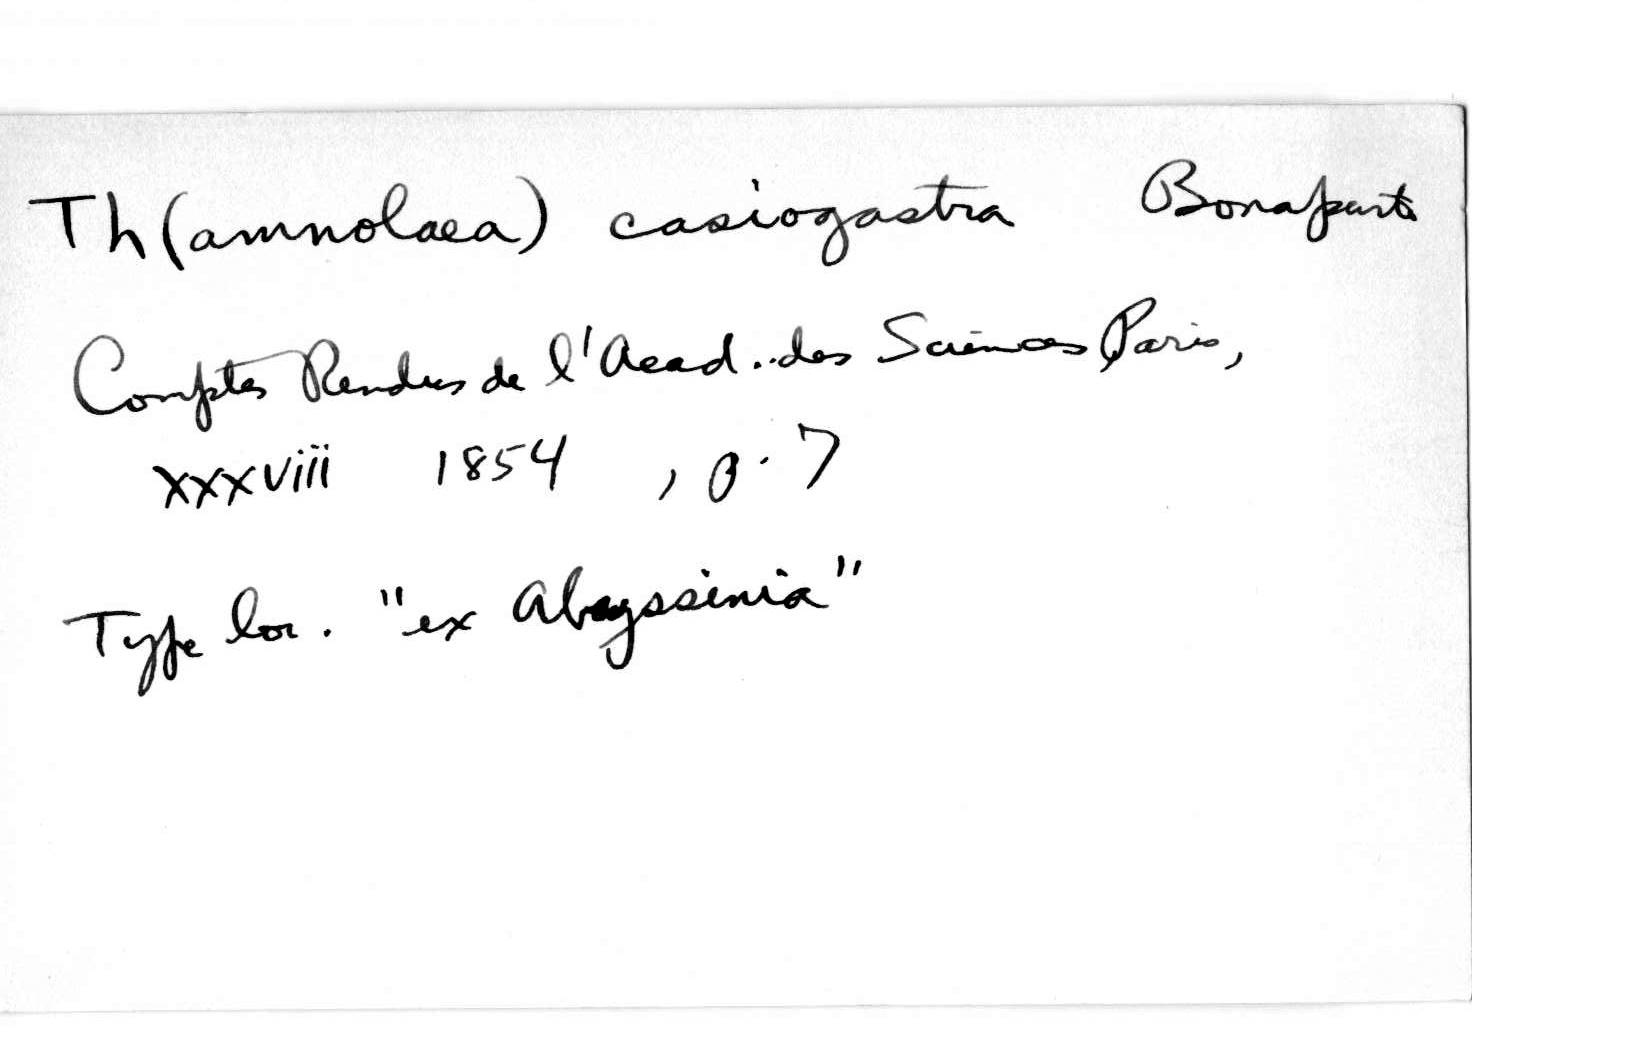 Th(amnolaea) casiogastra Bonaparte
Comptes Rendus de l'Acad. des Sciences Paris,
xxxviii 1854 , p. 7
Type loc. "ex Abyssinia"